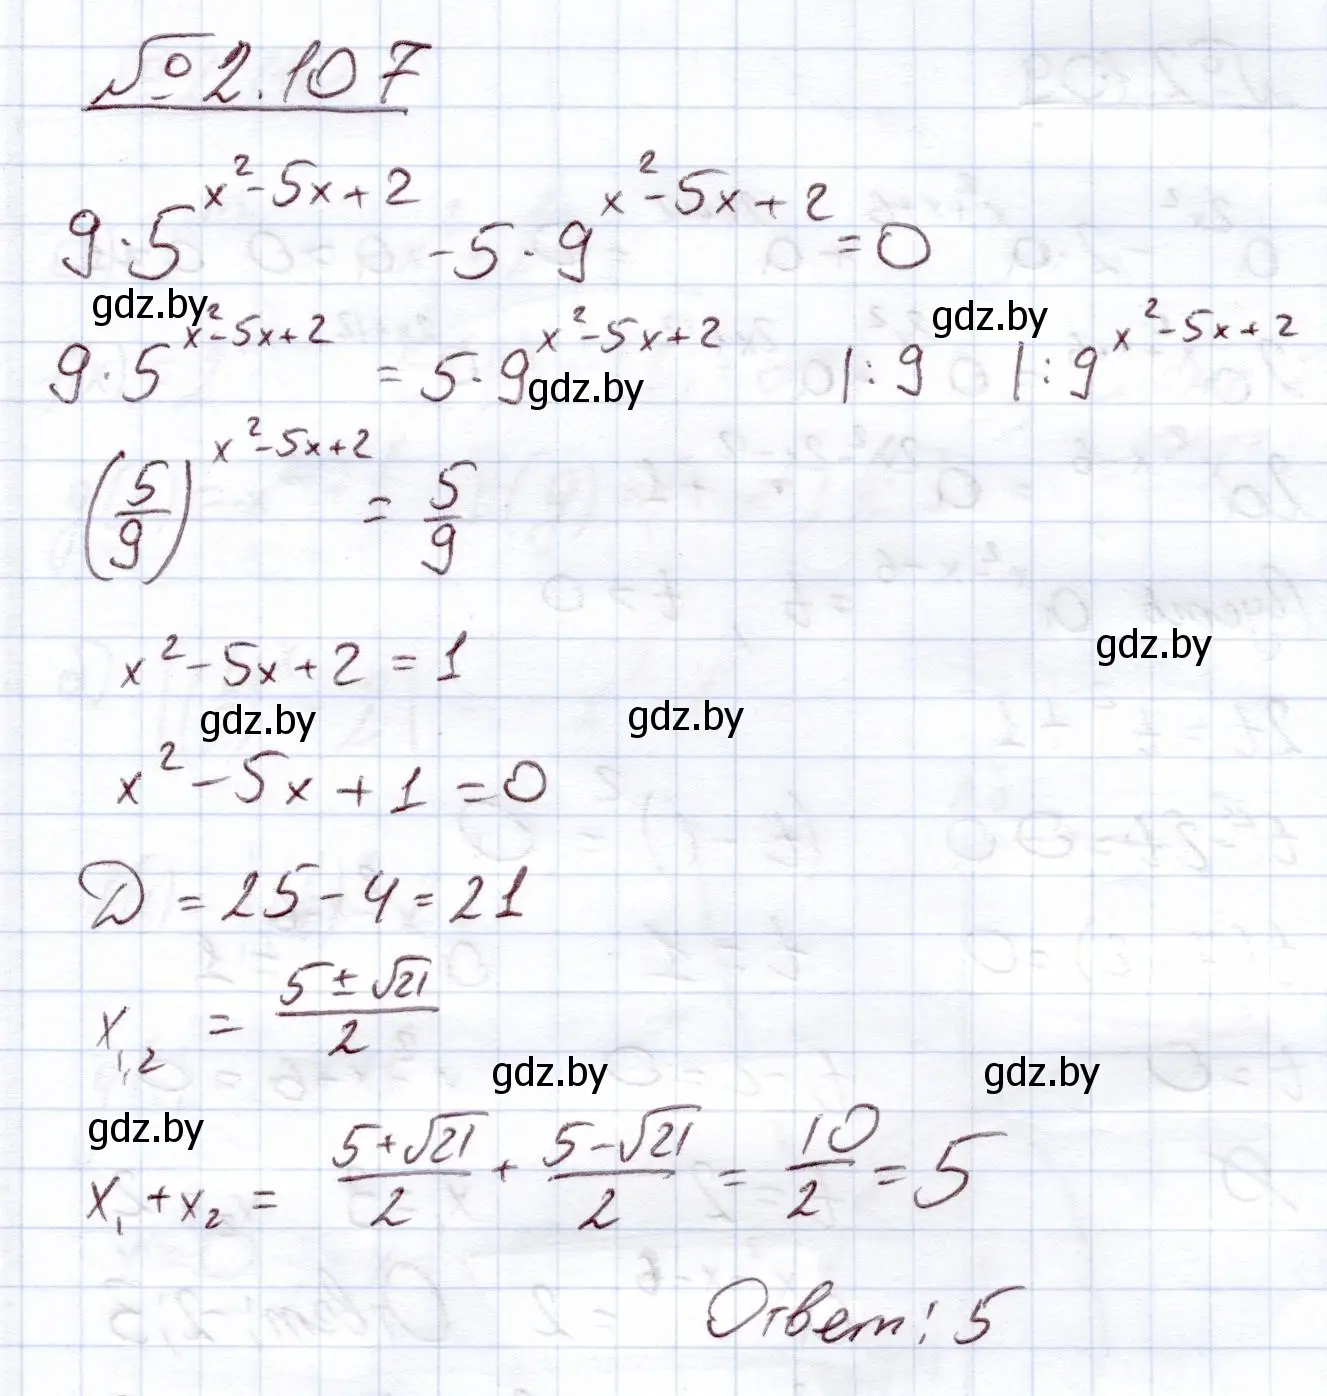 № 2.107
9·5^(x²-5x+2) - 5·9^(x²-5x+2) = 0
gdz.by
9·5^(x²-5x+2) = 5·9^(x²-5x+2) |:9 |:9^(x²-5x+2)
gdz.by gdz.by
(5/9)^(x²-5x+2) = 5/9
x²-5x+2=1
gdz.by
gdz.by gdz.by
x²-5x+1=0
D=25-4=21
x₁,₂ = (5±√21)/2
gdz.by gdz.by
gdz.by
x₁+x₂ = (5+√21)/2 + (5-√21)/2 = 10/2 = 5
Ответ: 5